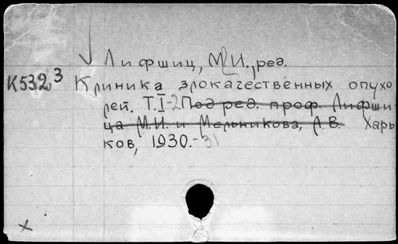 Лифшиц, М.И., ред.
К532³ Клиника злокачественных опухо
лей. Т.I-2 Под ред. проф. Лифши-
ца М.И. и Мельникова, А.В. Харь
ков, 1930.-31
х